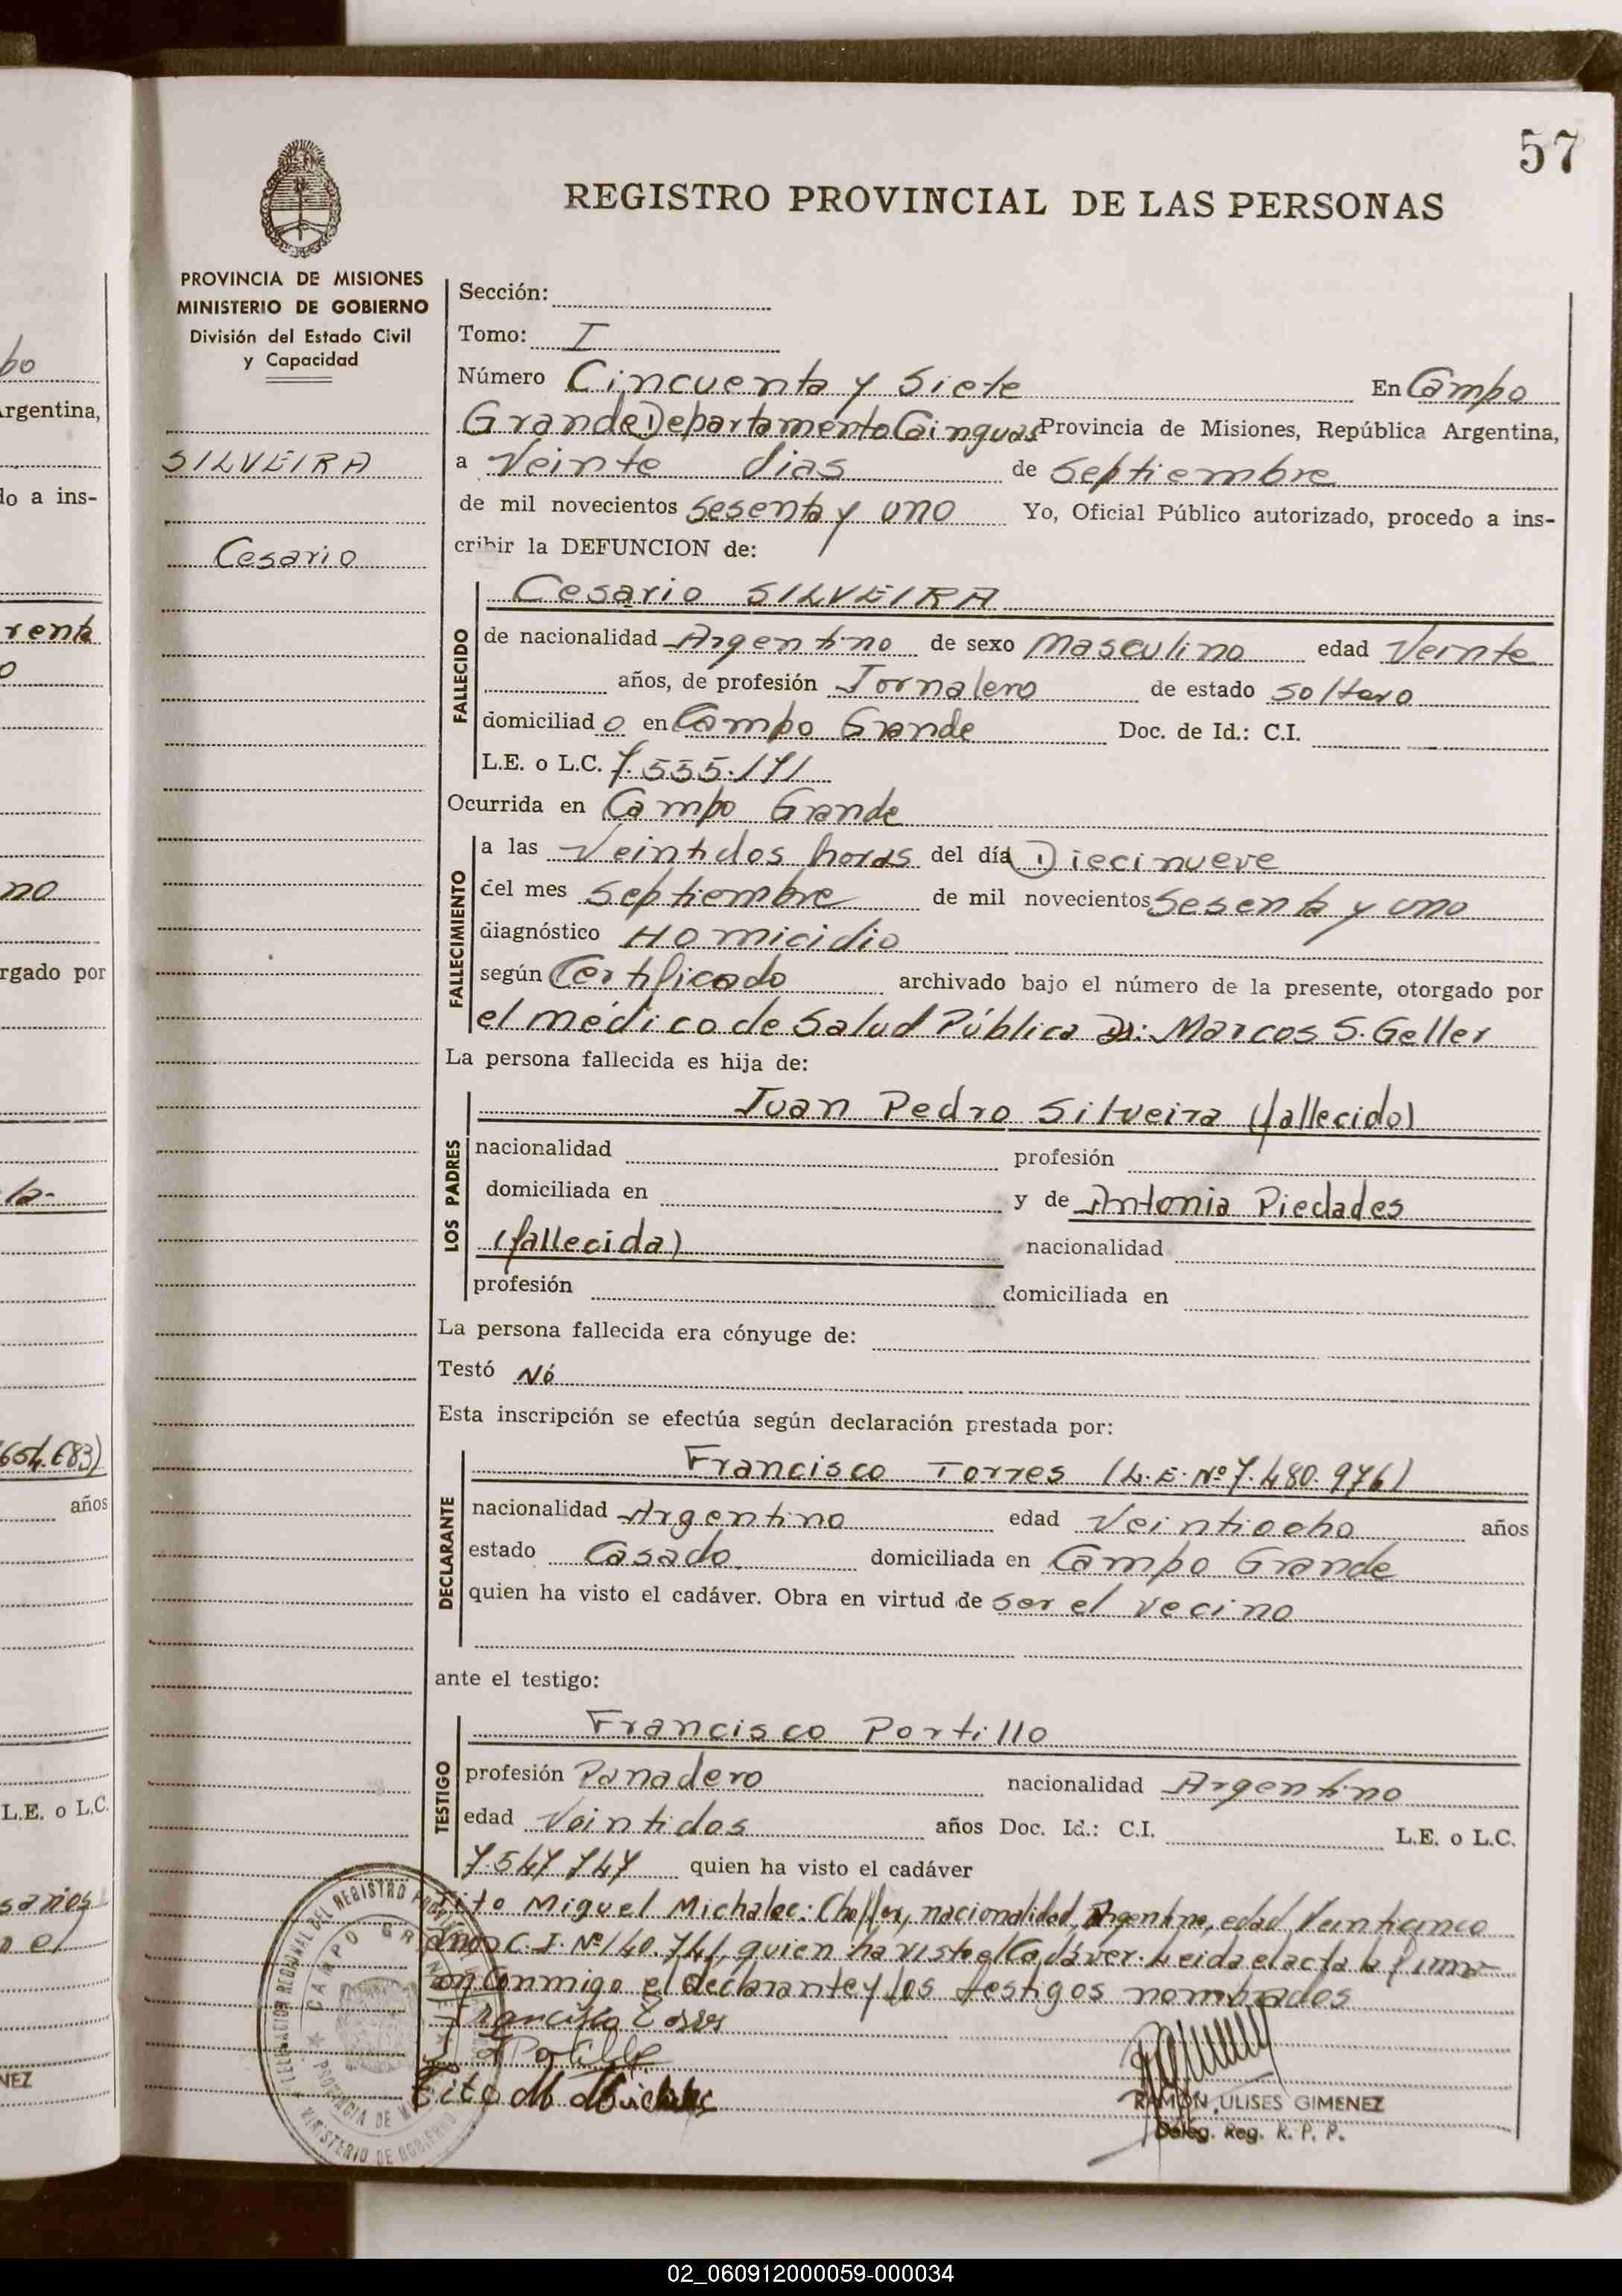 57
REGISTRO PROVINCIAL DE LAS PERSONAS
PROVINCIA DE MISIONES
MINISTERIO DE GOBIERNO
División del Estado Civil
y Capacidad
SILVEIRA
Cesario
Sección:
Tomo: I
Número Cincuenta y Siete En Campo
Grande Departamento Cainguas Provincia de Misiones, República Argentina,
a Veinte dias de Septiembre
de mil novecientos Sesenta y uno Yo, Oficial Público autorizado, procedo a ins-
cribir la DEFUNCION de:
FALLECIDO
Cesario SILVEIRA
de nacionalidad Argentino de sexo Masculino edad Veinte
años, de profesión Jornalero de estado soltero
domiciliad o en Campo Grande Doc. de Id.: C.I.
L.E. o L.C. 7.555.171
Ocurrida en Campo Grande
FALLECIMIENTO
a las Veintidos horas del día Diecinueve
del mes Septiembre de mil novecientos Sesenta y uno
diagnóstico Homicidio
según Certificado archivado bajo el número de la presente, otorgado por
el médico de Salud Pública Dr: Marcos S. Geller
La persona fallecida es hija de:
LOS PADRES
Juan Pedro Silveira (fallecido)
nacionalidad profesión
domiciliada en y de Antonia Piedades
(fallecida) nacionalidad
profesión domiciliada en
La persona fallecida era cónyuge de:
Testó Nó
Esta inscripción se efectúa según declaración prestada por:
DECLARANTE
Francisco Torres (L.E. Nº 7.480.976)
nacionalidad Argentino edad Veintiocho años
estado Casado domiciliada en Campo Grande
quien ha visto el cadáver. Obra en virtud de ser el vecino
ante el testigo:
TESTIGO
Francisco Portillo
profesión Panadero nacionalidad Argentino
edad Veintidos años Doc. Id.: C.I. L.E. o L.C.
7.547.747 quien ha visto el cadáver
Tito Miguel Michalec: Choffer, nacionalidad Argentino, edad Veinticinco
años C.I. Nº 140.741, quien ha visto el Cadáver. Leida el acta la firma
con conmigo el declarante y los testigos nombrados
Francisco Torres
Tito M Michalec
RAMON ULISES GIMENEZ
Deleg. Reg. R. P. P.
DELEGACION REGIONAL DEL REGISTRO
CAMPO GRANDE
PROVINCIA DE
MINISTERIO DE GOBIERNO
bo
Argentina,
do a ins-
renta
no
rgado por
la-
654.683)
años
L.E. o L.C.
n el
NEZ
02_060912000059-000034